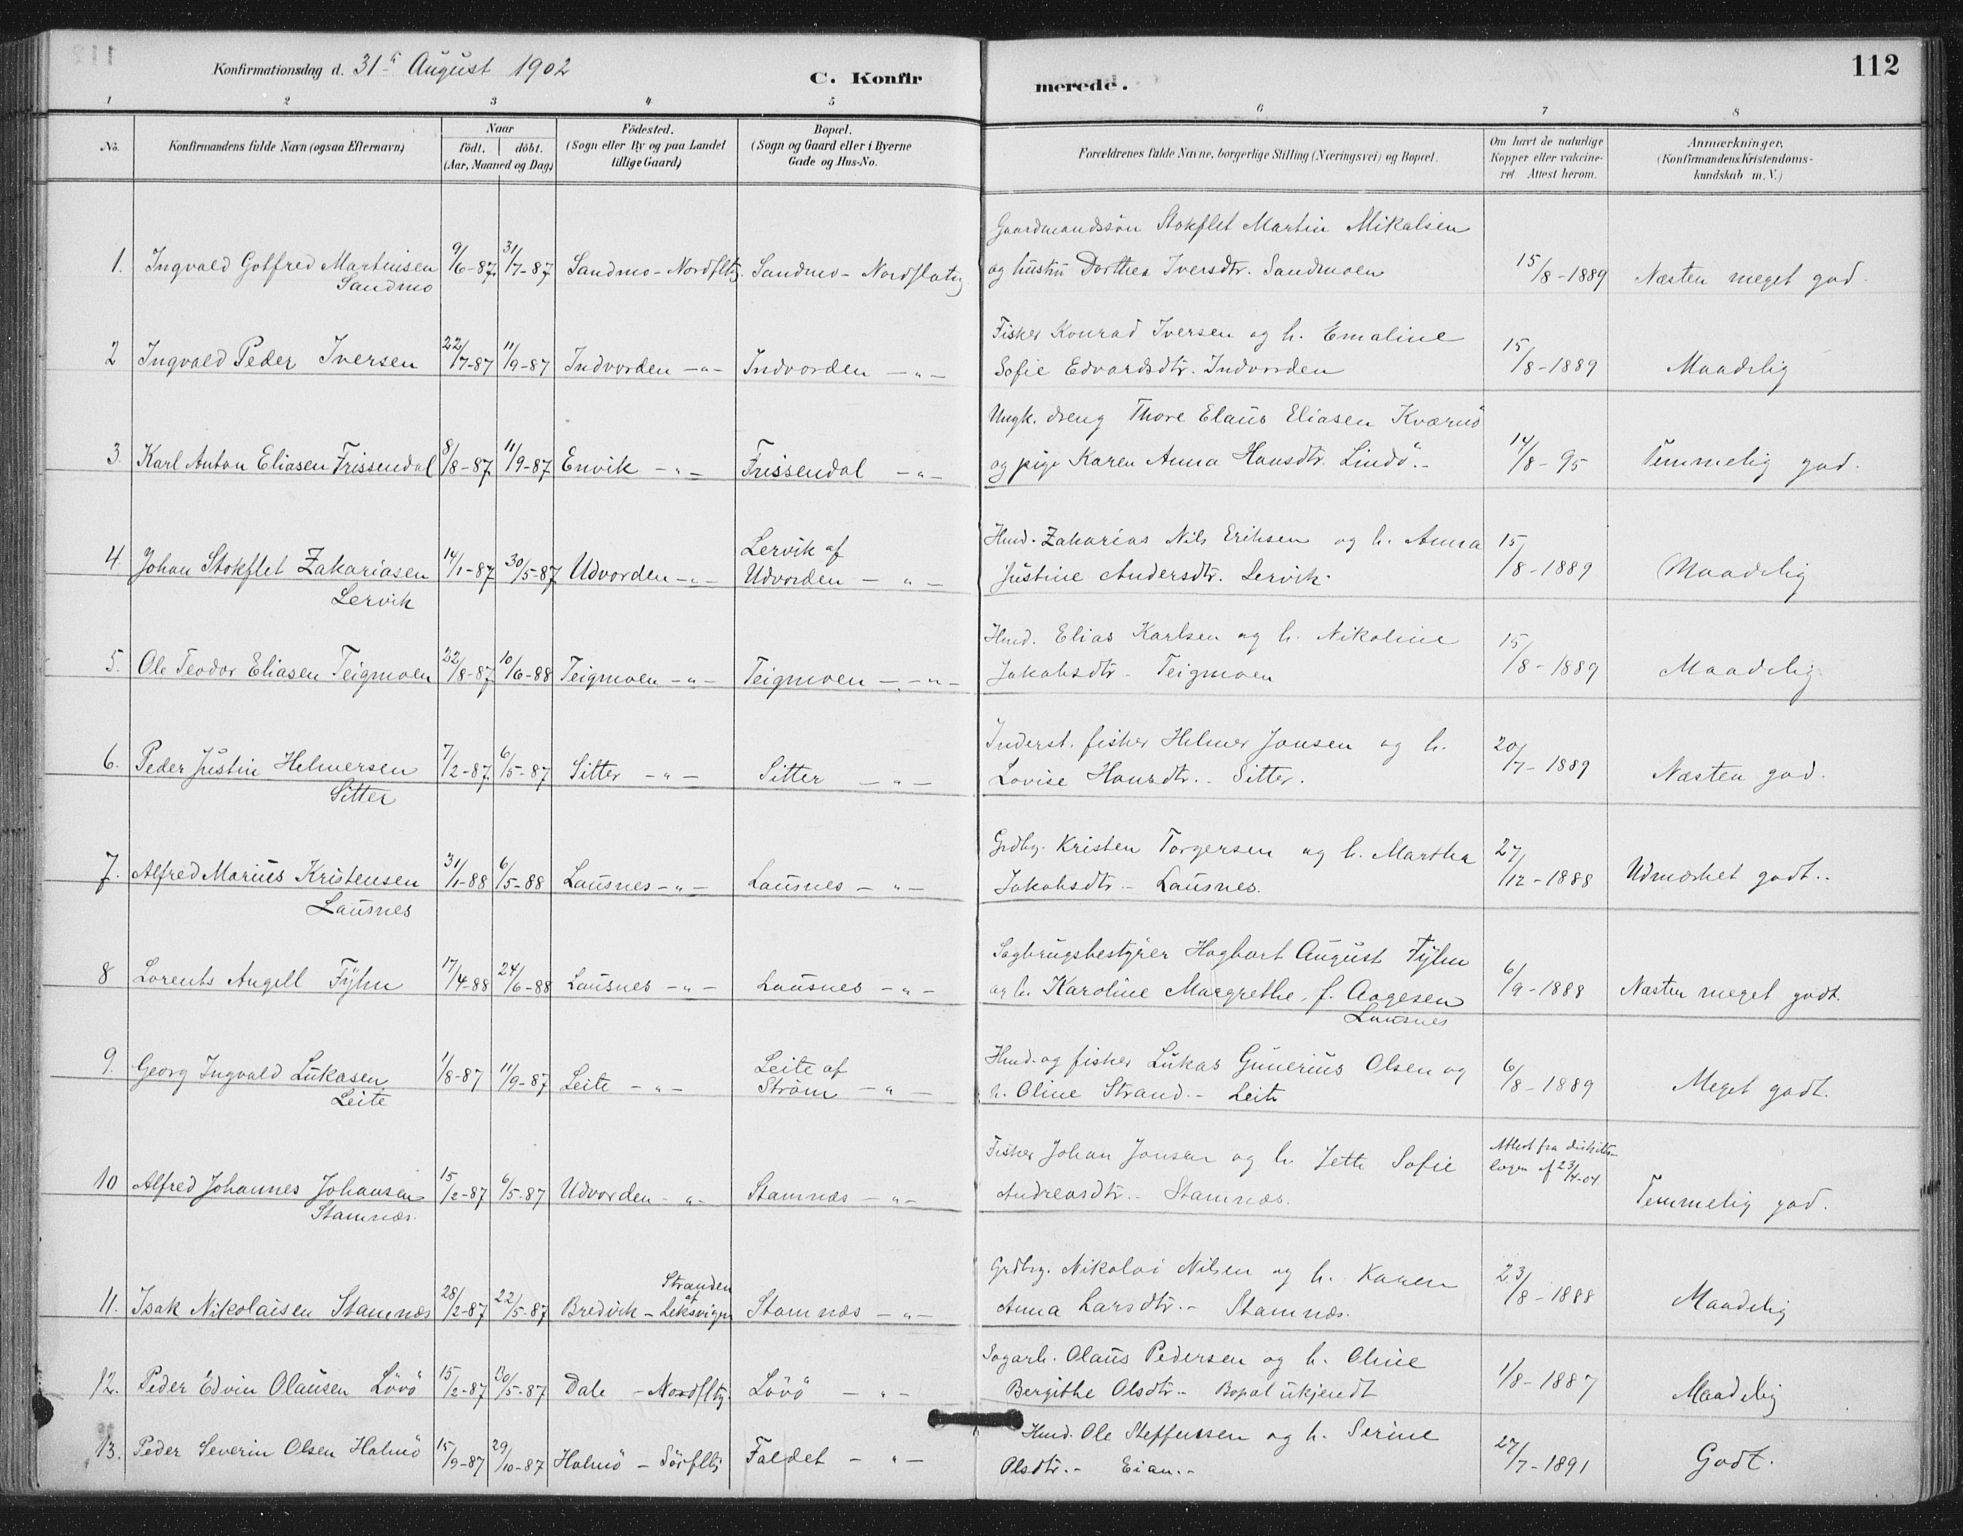 Konfirmationsdag d. 31te August 1902
C. Konfir
merede.
112
1 2 3 4 5 6 7 8
No.
Konfirmandens fulde Navn (ogsaa Efternavn)
Naar
födt. döbt.
(Aar, Maaned og Dag)
Födested.
(Sogn eller By og paa Landet
tillige Gaard)
Bopæl.
(Sogn og Gaard eller i Byerne
Gade og Hus-No.
Forældrenes fulde Navne, borgerlige Stilling (Næringsvei) og Bopæl.
Om havt de naturlige
Kopper eller vakcine-
ret Attest herom.
Anmærkninger,
(Konfirmandens Kristendoms-
kundskab m. V.)
Gaardmandssön Stokflet Martin Mikalsen
1. Ingvald Gotfred Martinsen 9/6-87. 31/7-87 Sandmo - Nordfltg. Sandmo - Nordflatg og hustru Dorthea Iversdtr. Sandmoen 15/8-1889 Næsten meget god.
Sandmo
Fisker Konrad Iversen og h. Emaline
2 Ingvald Peder Iversen 22/7-87 11/9-87 Indvorden -"- Indvorden -"- Sofie Edvardsdtr. Indvorden 15/8-1889 Maadelig
Ungk. dreng Thore Elaus Eliasen Kværnö
3. Karl Anton Eliasen Frissendal 8/8-87 11/9-87 Envik -"- Frissendal -"- og pige Karen Anna Hansdtr. Lindö.- 14/8-95 Temmelig god.
Lervik af
Hmd. Zakarias Nils Eriksen og h. Anna
4. Johan Stokflet Zakariasen 14/1-87 30/5-87 Udvorden -"- Udvorden -"- Justine Andersdtr. Lervik. 15/8-1889 Maadelig
Lervik
Hmd. Elias Karlsen og h. Nikoline
5. Ole Teodor Eliasen Teigmoen 22/8-87 10/6-88 Teigmoen -"- Teigmoen -"- Jakobsdtr - Teigmoen 15/8-1889 Maadelig
Inderst. fisker Helmer Jonsen og h.
6. Peder Justin Helmersen 7/2-87. 6/5-87 Sitter -"- Sitter -"- Lovise Hansdtr. - Sitter. 20/7-1889 Næsten god.
Sitter
Grdbg. Kristen Torgersen og h. Martha
7. Alfred Marius Kristensen 31/1-88 6/5-88 Lausnes -"- Lausnes -"- Jakobsdtr - Lausnes. 27/12-1888 Udmærket godt..
Lausnes
Sagbrugsbestyrer Hagbart August Fÿhn
8 Lorents Angell Fÿhn 17/4-88 24/6-88 Lausnes -"- Lausnes -"- og h. Karoline Margrethe, f. Aagesen 6/9-1888 Næsten meget godt.
Lausnes
Leite af
Hmd. og fisker Lukas Gunerius Olsen og
9. Georg Ingvald Lukasen 1/8-87 11/9-87 Leite -"- Ström -"- h. Oline Strand. - Leite 6/8-1889 Meget godt.
Leite
Fisker Johan Jonsen og h. Jette Sofie Attest fra
10 Alfred Johannes Johansen 15/2-87 6/5-87 Udvorden -"- Stamnæs -"- Andreasdtr. - Stamnæs. Temmelig god.
Stamnæs.
Stranden
af
Grdbg. Nikolai Nilsen og h. Karen
11. Isak Nikolaisen Stamnæs 28/2-87 22/5-87 Bredvik - Leksvigen Stamnæs -"- Anna Larsdtr. - Stamnæs. 23/8-1888 Maadelig
Sagarb. Olaus Pedersen og h. Oline
12. Peder Edvin Olausen Lövö 15/2-87 30/5-87 Dale - Nordfltg. Lövö -"- Bergithe Olsdtr. - Bopæl ukjendt 1/8-1887 Maadelig
Hmd. Ole Steffensen og h. Serine
13. Peder Severin Olsen Halmö 15/9-87 29/10-87 Halmö - Sörfltg Faldet -"- Olsdtr. - Eian.- 27/7-1891 Godt.